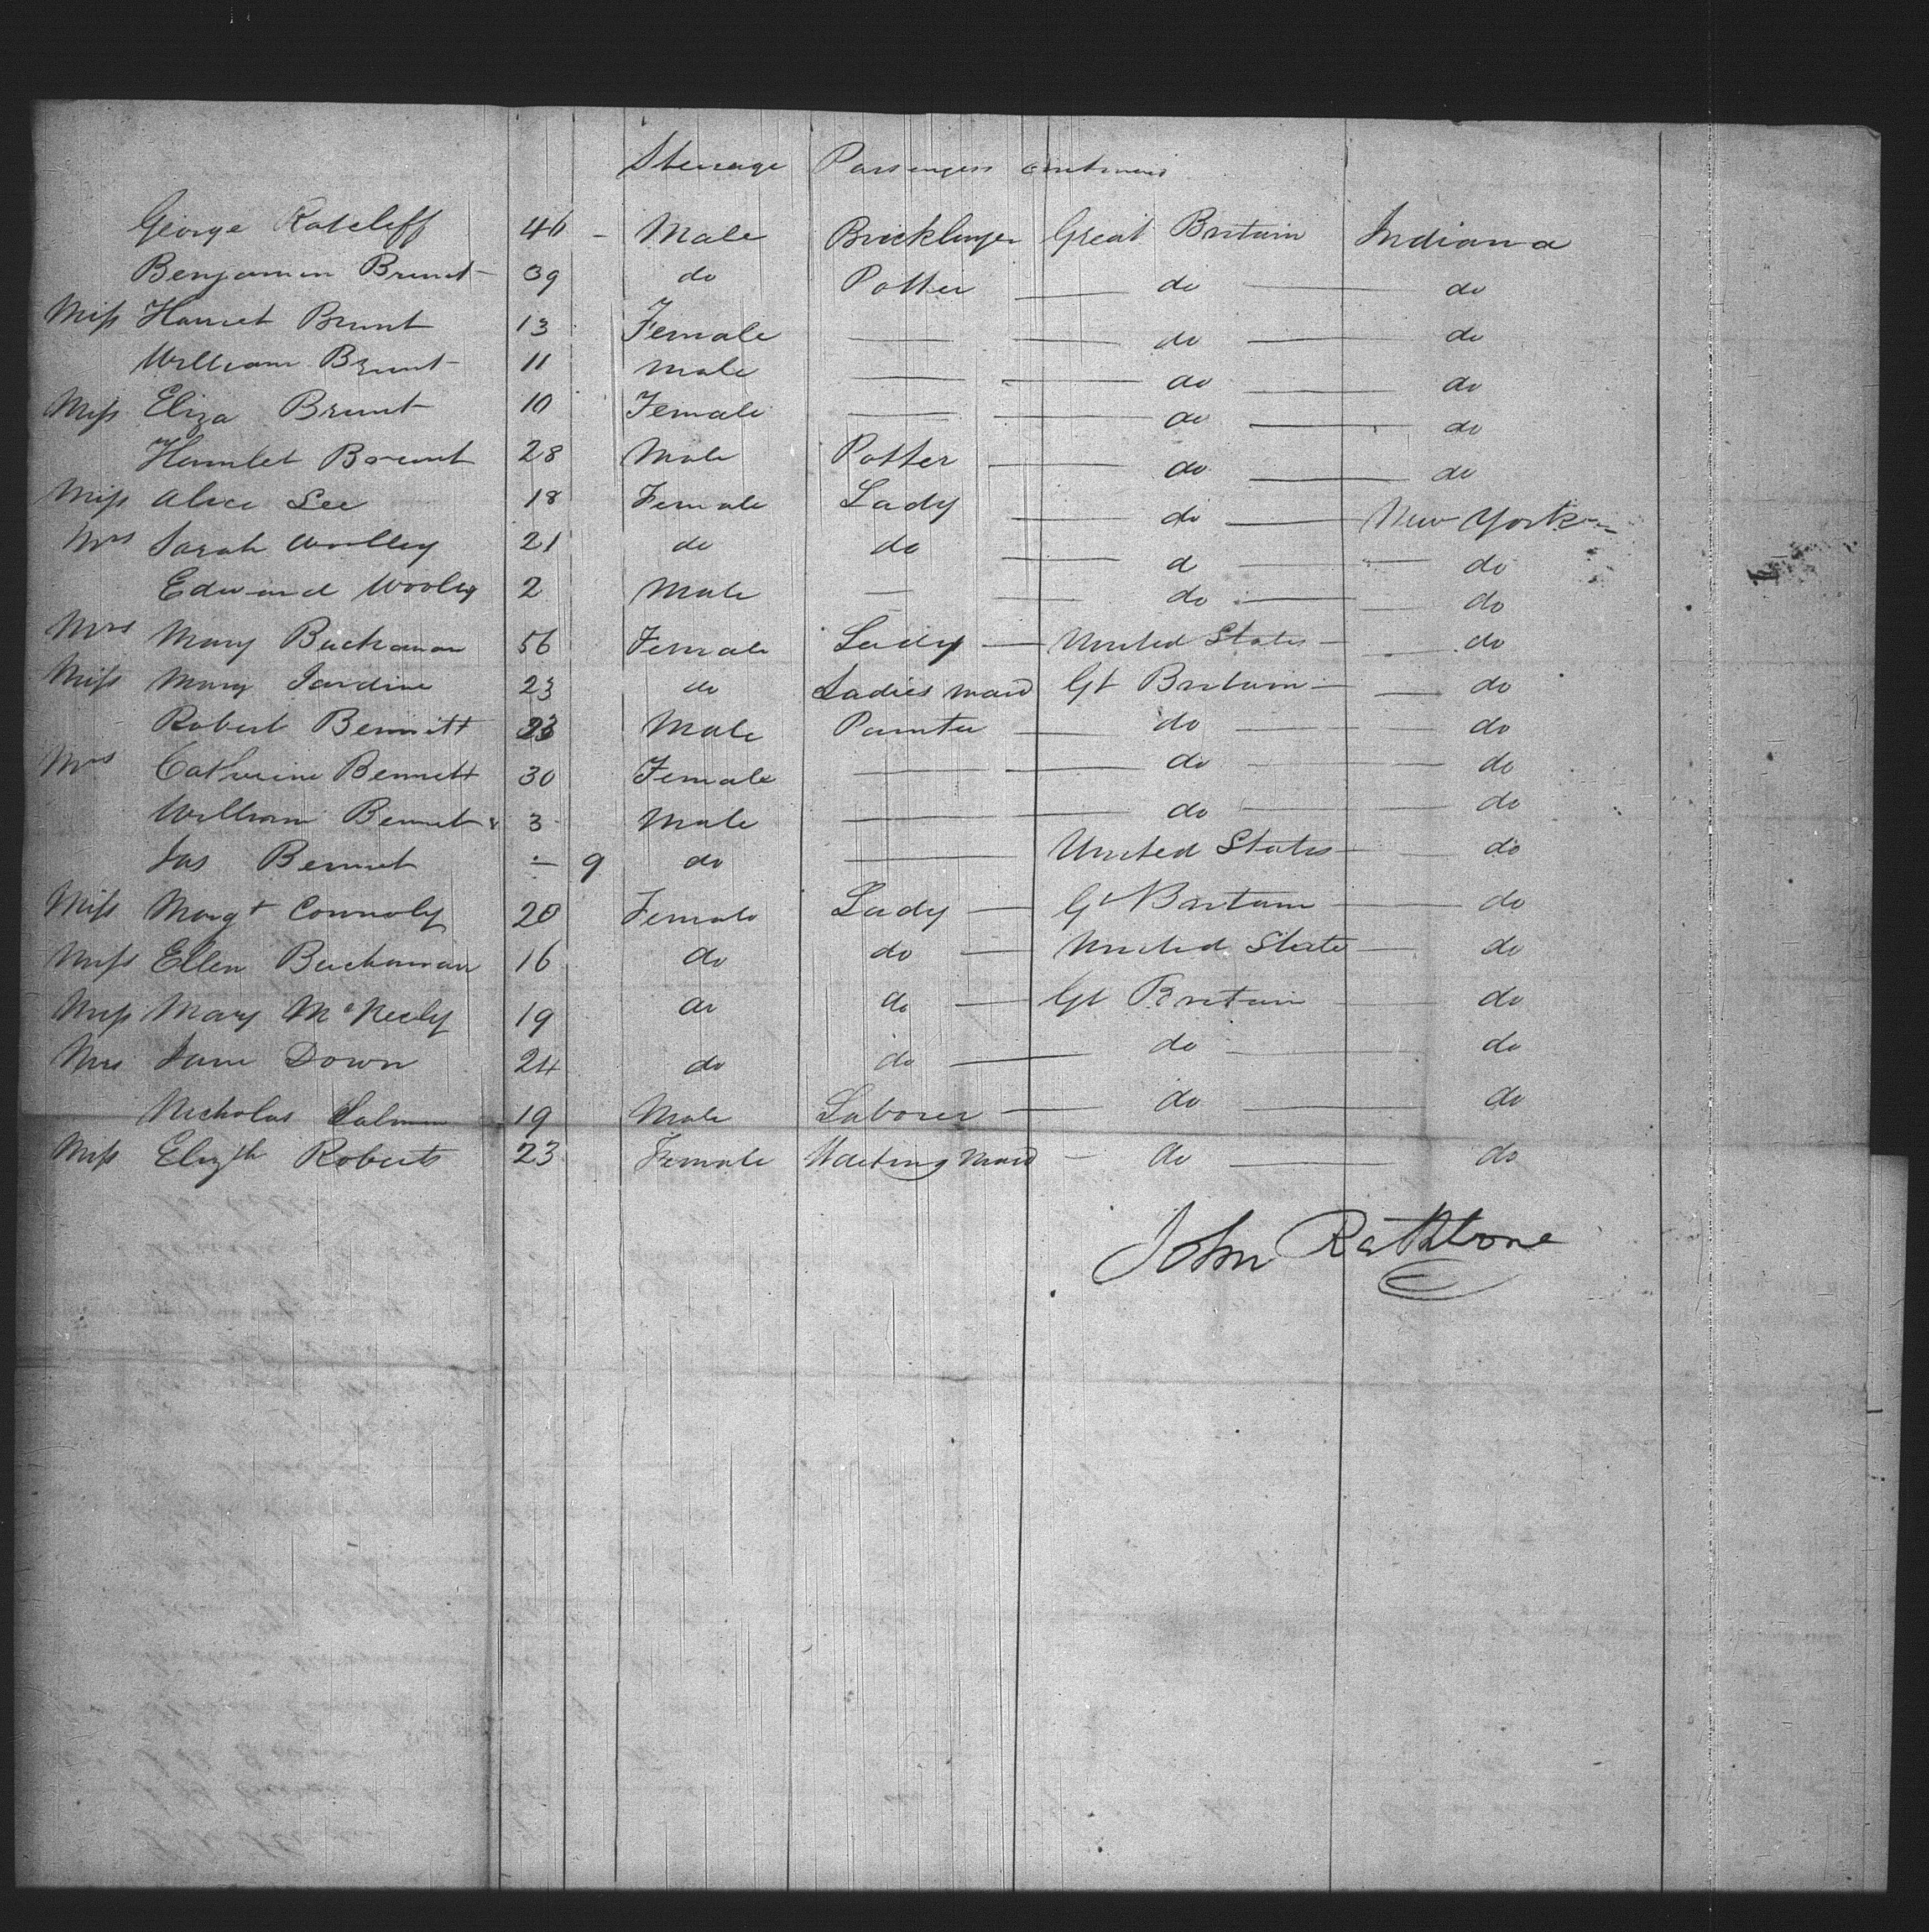 Steerage Passengers continued
George Ratcliff 46 - Male Bricklayer Great Britain Indiana
Benjamin Brunt 39 do Potter do do
Miss Harriet Brunt 13 Female do do
William Brunt 11 Male do do
Miss Eliza Brunt 10 Female do do
Hamlet Brunt 28 Male Potter do do
Miss Alice Lee 18 Female Lady do New York
Mrs Sarah Woolley 21 do do d do
Edward Wooley 2 Male — do do
Mrs Mary Buchanan 56 Female Lady United States do
Miss Mary Jardine 23 do Ladies maid Gt Britain do
Robert Bennitt 23 Male Painter do do
Mrs Catherine Bennett 30 Female do do
William Bennet 3 Male do do
Jas Bennet - 9 do United States do
Miss Margt Connoly 20 Female Lady Gt Britain do
Miss Ellen Buchanan 16 do do United States do
Miss Mary McNeely 19 do do Gt Britain do
Mrs Jane Down 24 do do do do
Nicholas Salmon 19 Male Laborer do do
Miss Elizth Roberts 23 Female Waiting Maid do do
John Rathbone